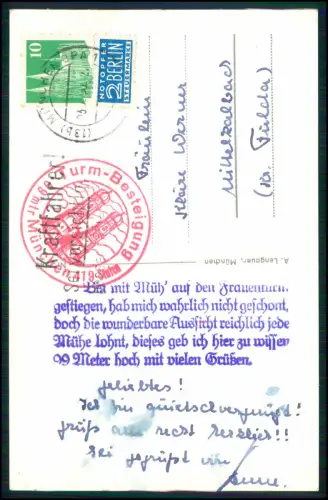 10
NOTOPFER
2 BERLIN
STEUERMARKE
MÜNCHEN
(13b)
Kraftfahrer!
Turm-Besteigung
419 Stufen
Fräulein
Kläre Werner
Mittelkalbach
(Kr. Fulda)
A. Lengauer, München
Bin mit Müh' auf den Frauenturm
gestiegen, hab mich wahrlich nicht geschont,
doch die wunderbare Aussicht reichlich jede
Mühe lohnt, dieses geb ich hier zu wissen
99 Meter hoch mit vielen Grüßen.
Geliebtes!
Ich bin quietschvergnügt!
grüß alle recht herzlich!!
Sei gegrüßt von